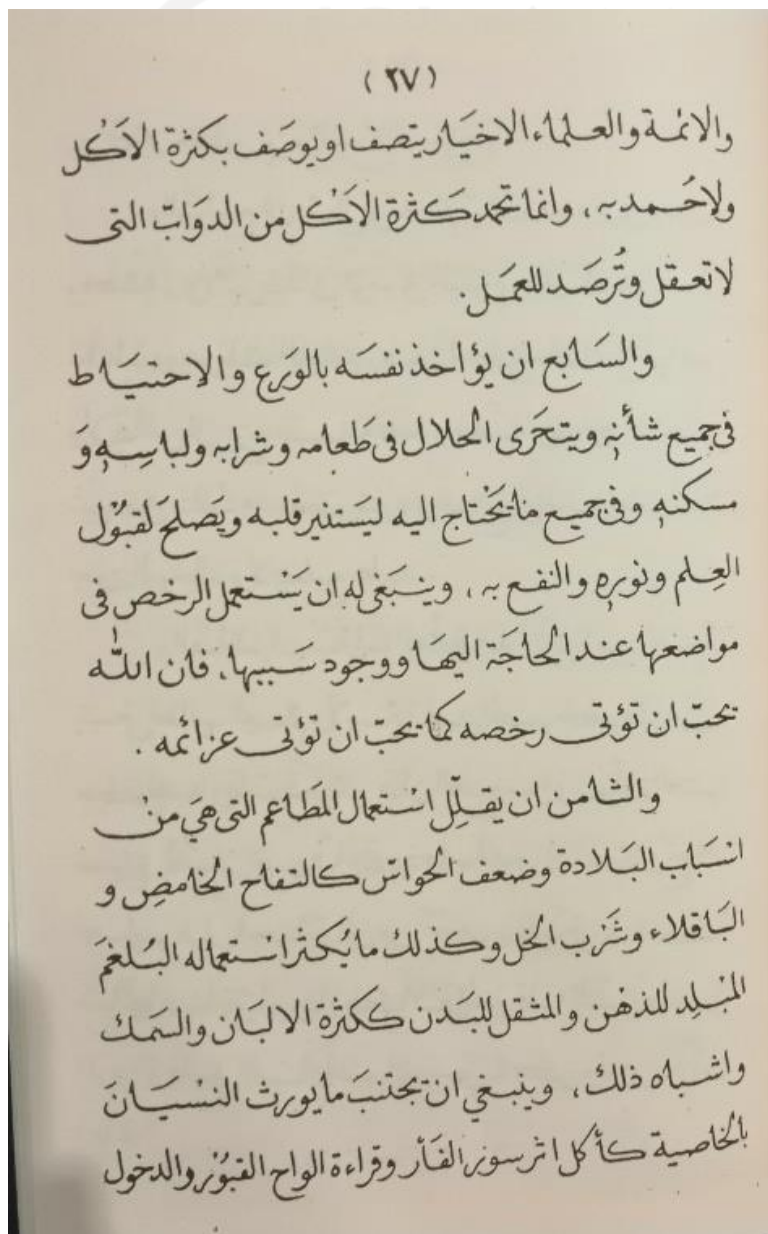 (٢٧)
والائمة والعلماء الاخيَار يتصف او يوصَف بكثرة الاَكْل
ولاحُمد به، وانما تحمد كَثرة الاَكْل من الدوَابّ التى
لا تعقل وتُرصَد للعمَل.
والسَابع ان يؤاخذ نفسَه بالوَرع والاحتيَاط
فى جميع شأنهِ ويتحَرى الحلال فى طَعامه وشرابه ولباسِهِ وَ
مسكنهِ وفى جميع مَا يَحْتاج اليه ليَستنير قلبه ويَصلحَ لقبُوْل
العِلم ونورِهِ والنفع به، وينبَغى له ان يَسْتعمل الرخص فى
مواضعها عند الحاجَة اليهَا ووجود سَببها، فان اللّٰه
يحبّ ان تؤتى رخصه كمَا يحبّ ان تؤتى عزائمه .
والثامن ان يقلّل اسْتعمال المَطاعم التى هيَ منْ
اسْبَاب البَلادة وضعف الحواسّ كالتفاح الحَامضِ و
البَاقلاء وشَرْب الخل وكذلك ما يُكثر اسْتعماله البُلغمَ
المُبْلِد للذهْن والمثقل للبَدن ككثرة الالبَان والسَمك
واشباه ذلك، وينبغي ان يجتنبَ ما يورث النسْيَانَ
بالخاصية كأكل اثر سور الفَأر وقراءة الواح القبُوْر والدخول